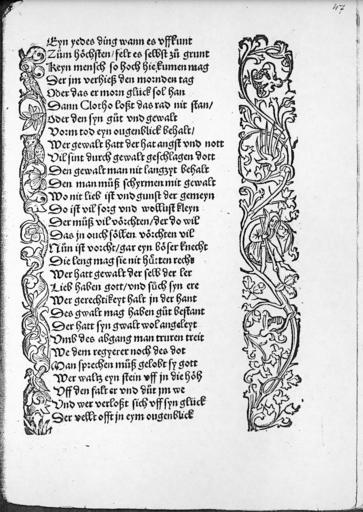 47
Eyn yedes ding wann es vffkunt
Zům höchsten / felt es selbst zů grunt
Keyn mensch so hoch hie kumen mag
Der jm verhieß den mornden tag
Oder das er morn glück sol han
Dann Clotho loßt das rad nit stan /
Oder den syn gůt vnd gewalt
Vorm tod eyn ougenblick behalt /
Wer gewalt hatt der hat angst vnd nott
Vil sint durch gewalt geschlagen dott
Den gewalt man nit langzyt behalt
Den man můß schyrmen mit gewalt
Wo nit lieb ist vnd gunst der gemeyn
Do ist vil sorg vnd wollust kleyn
Der můß vil vörchten / der do wil
Das jn ouch söllen vörchten vil
Nůn ist vorcht / gar eyn böser knecht
Die leng mag sie nit hůten recht
Wer hatt gewalt der selb der ler
Lieb haben gott / vnd sůch syn ere
Wer gerechtikeyt halt jn der hant
Des gwalt mag haben gůt bestant
Der hatt syn gwalt wol angeleyt
Vmb des abgang man truren treit
We dem regyerer noch des dot
Man sprechen můß gelobt sy gott
Wer waltzt eyn steyn vff jn die höh
Vff den falt er vnd důt jm we
Vnd wer verloßt sich vff syn glück
Der vellt offt jn eym ougenblick